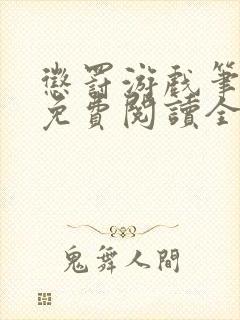 懲罰游戲筆
免費閱讀全
鬼舞人間